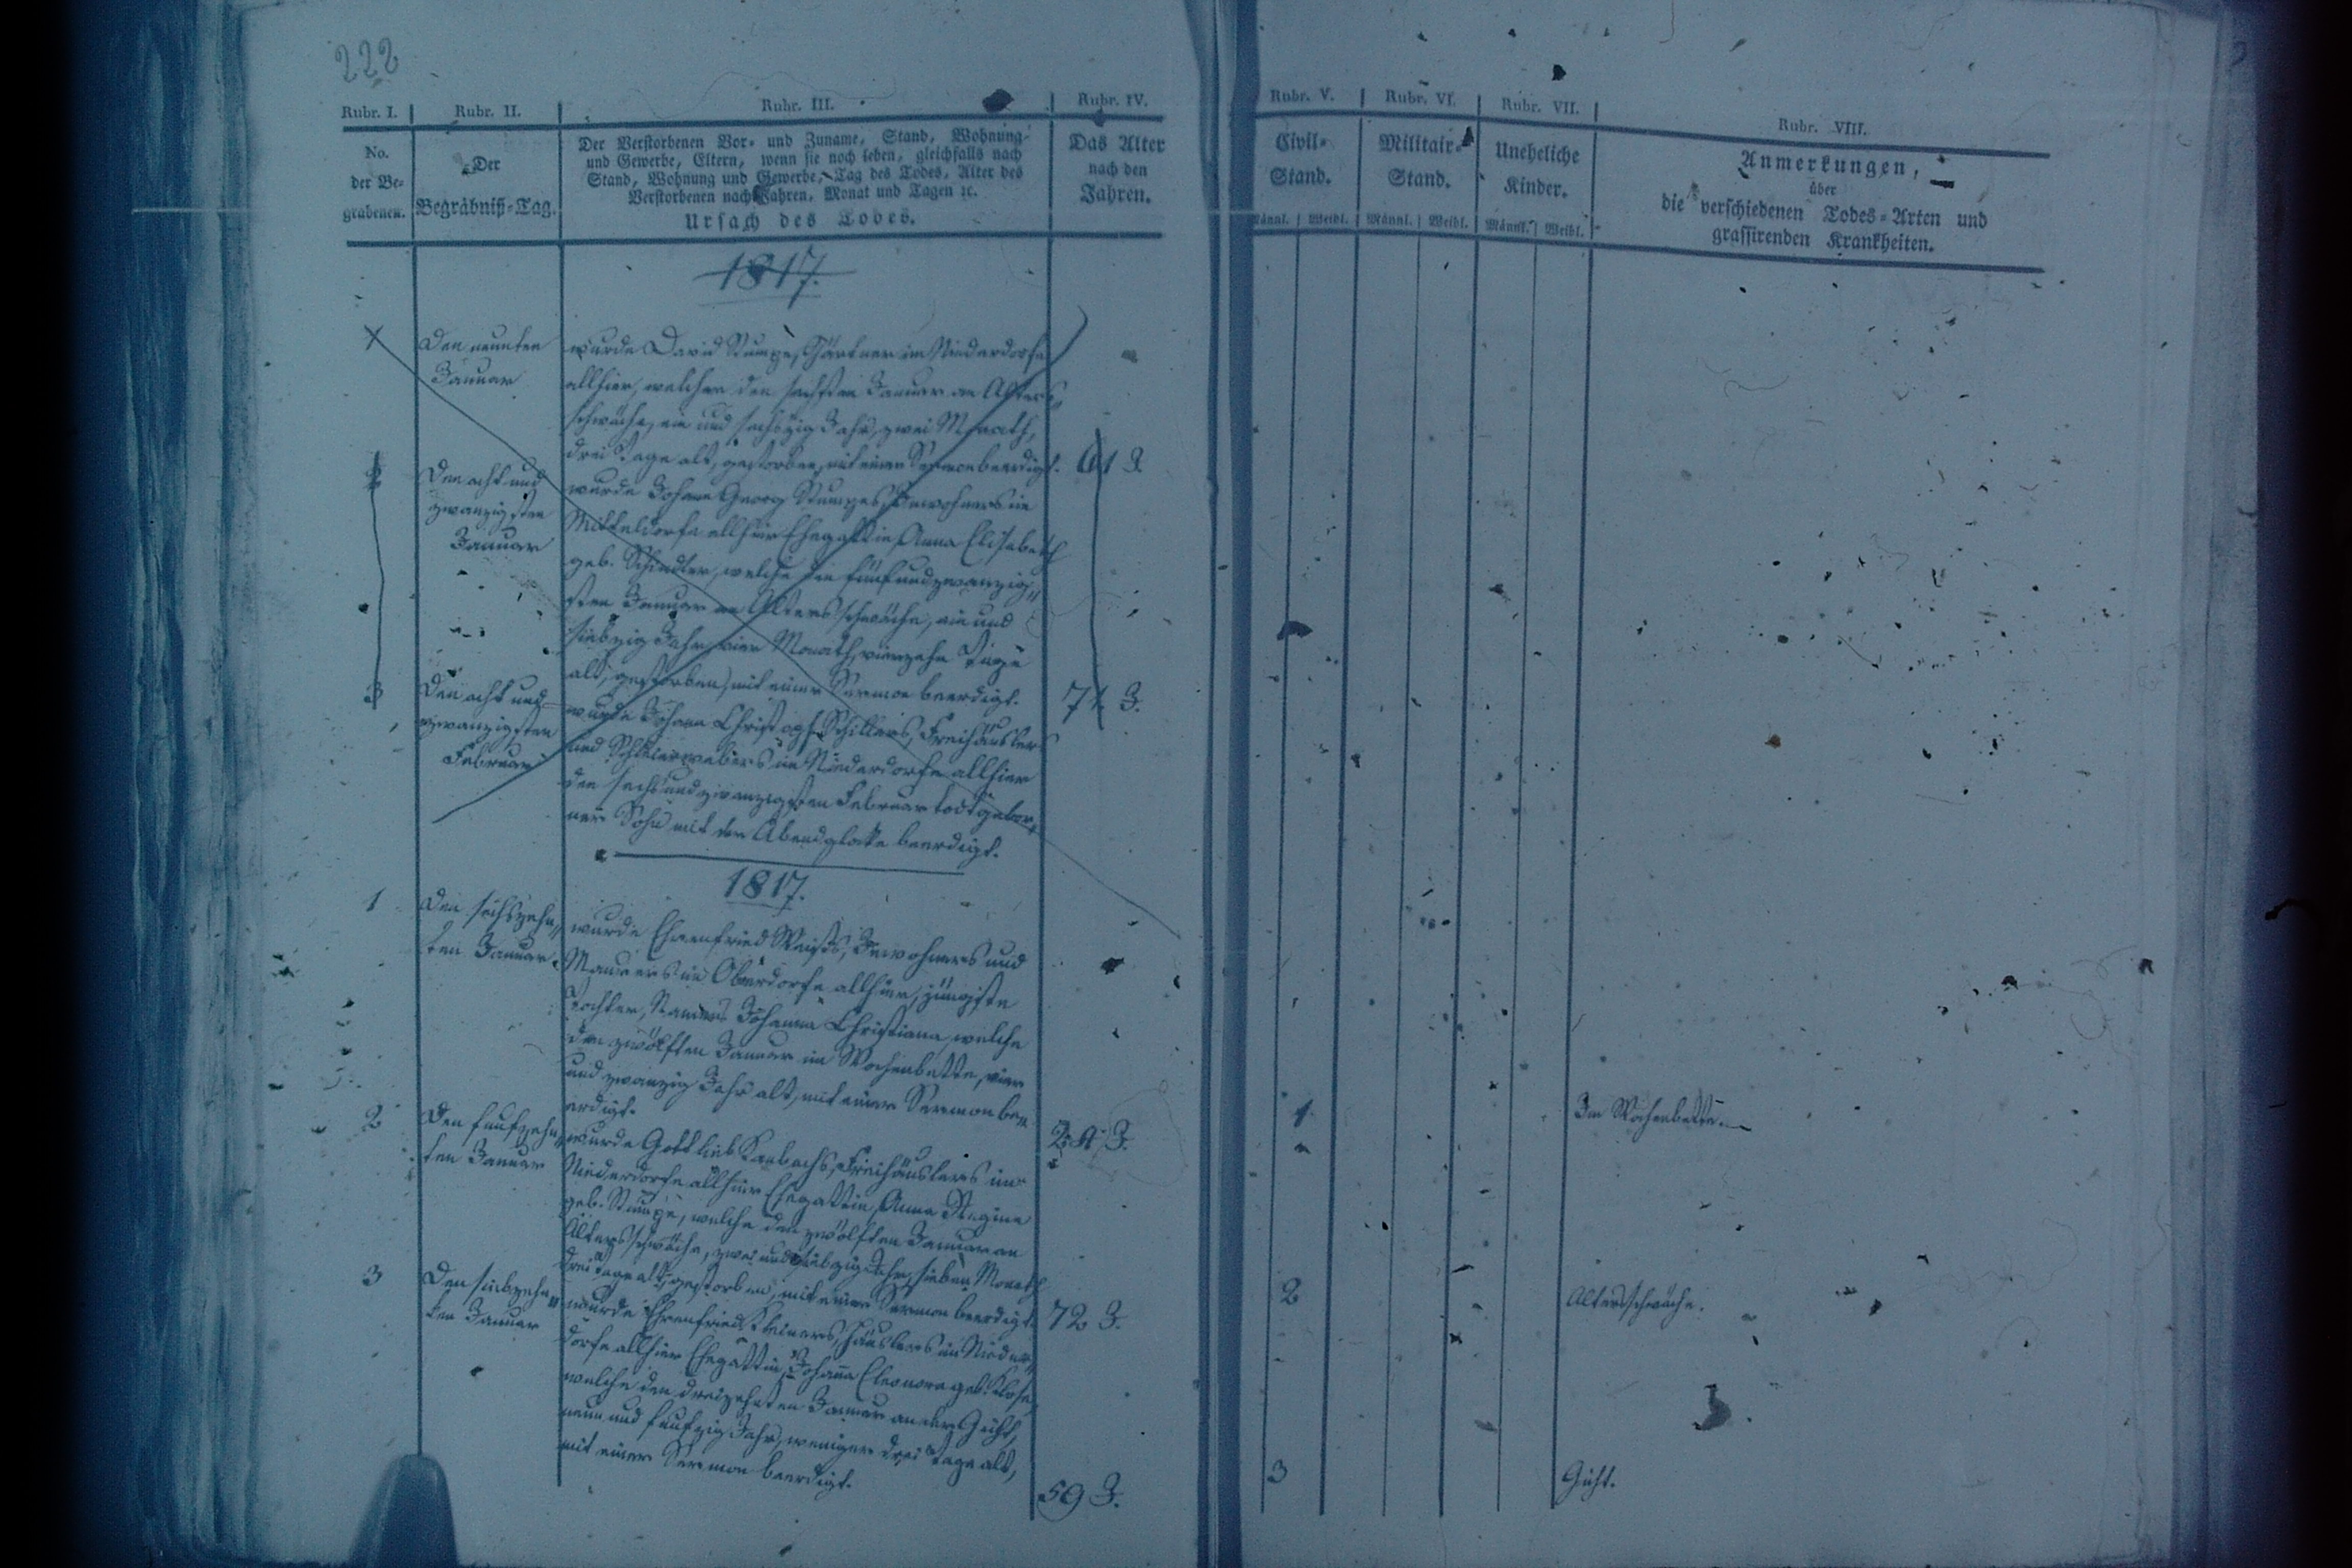 222
Rubr. I.
Rubr. II.
Rubr. III.
Rubr. IV.
No.
der Be-
grabenen.
Der
Begräbniß-Tag.
Der Verstorbenen Vor- und Zuname, Stand, Wohnung
und Gewerbe, Eltern, wenn sie noch leben, gleichfalls nach
Stand, Wohnung und Gewerbe, Tag des Todes, Alter des
Verstorbenen nach Jahren, Monat und Tagen ꝛc.
Ursach des Todes.
Das Alter
nach den
Jahren.
1817.
Den neunten
Januar
wurde David Stumpe, Gärtner im Niederdorfe
allhier, welcher den sechsten Januar an Alters-
schwäche, ein und sechszig Jahr, zwei Monath,
drei Tage alt, gestorben, mit einer Sermon beerdigt.
61 J.
2
Den acht und
zwanzigsten
Januar
wurde Johann Georg Stumpes, Inwohners im
Mitteldorfe allhier Ehegattin, Anna Elisabeth
geb. Schindler, welche den fünfundzwanzig-
sten Januar an Altersschwäche, ein und
siebzig Jahr, vier Monath, vierzehn Tage
alt, gestorben, mit einer Sermon beerdigt.
71 J.
3
Den acht und
zwanzigsten
Februar
wurde Johann Christoph Schillers, Freihäuslers
und Schleierwebers im Niederdorfe allhier
den sechsundzwanzigsten Februar todtgebor-
ner Sohn mit der Abendglocke beerdigt.
1817.
1
Den sechszehn-
ten Januar.
wurde Ehrenfried Weists, Inwohners und
Maurers im Oberdorfe allhier, jüngste
Tochter, Namens Johanna Christiana, welche
den zwölften Januar im Wochenbette, vier
und zwanzig Jahr alt, mit einer Sermon be-
erdigt.
24 J.
2
Den funfzehn-
ten Januar
wurde Gottlieb Raabachs, Freihäuslers im
Niederdorfe allhier Ehegattin, Anna Regina
geb. Stumpe, welche den zwölften Januar an
Altersschwäche, zwei und siebzig Jahr, sieben Monath
drei Tage alt, gestorben, mit einer Sermon beerdigt.
72 J.
3
Den siebzehn-
ten Januar
wurde Ehrenfried Kleiners, Häuslers im Nieder-
dorfe allhier Ehegattin, Johanna Eleonora geb. Klose,
welche den dreizehnten Januar an der Gicht,
neun und funfzig Jahr, weniger drei Tage alt,
mit einer Sermon beerdigt.
59 J.
Rubr. V.
Rubr. VI.
Rubr. VII.
Rubr. VIII.
Civil-
Stand.
Militair-
Stand.
Uneheliche
Kinder.
Anmerkungen,
über
die verschiedenen Todes-Arten und
grassirenden Krankheiten.
Männl. Weibl. Männl. Weibl. Männl. Weibl.
1 Im Wochenbette.
2 Altersschwäche.
3 Gicht.